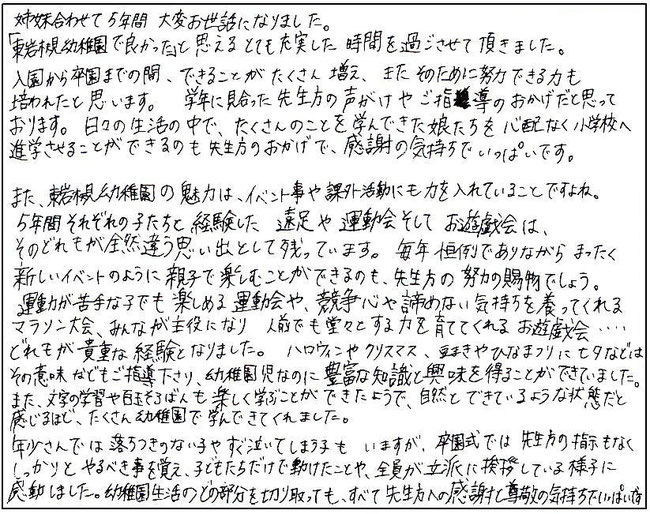 姉妹合わせて5年間 大変お世話になりました。
「東岩槻幼稚園で良かった」と思えるとても充実した時間を過ごさせて頂きました。
入園から卒園までの間、できることがたくさん増え、またそのために努力できる力も
培われたと思います。 学年に見合った先生方の声がけやご指導のおかげだと思って
おります。日々の生活の中で、たくさんのことを学んできた娘たちを心配なく小学校へ
進学させることができるのも先生方のおかげで、感謝の気持ちでいっぱいです。
また、東岩槻幼稚園の魅力は、イベント事や課外活動にも力を入れていることですよね。
5年間それぞれの子たちと経験した 遠足や運動会そしてお遊戯会は、
そのどれもが全然違う思い出として残っています。毎年恒例でありながらまったく
新しいイベントのように親子で楽しむことができるのも、先生方の努力の賜物でしょう。
運動が苦手な子でも楽しめる運動会や、競争心や諦めない気持ちを養ってくれる
マラソン大会、みんなが主役になり 人前でも堂々とする力を育ててくれるお遊戯会‥‥
どれもが貴重な経験となりました。 ハロウィンやクリスマス、豆まきやひなまつりに七夕などは
その意味などもご指導下さり、幼稚園児なのに豊富な知識と興味を得ることができていました。
また、文字の学習や百玉そろばんも楽しく学ぶことができたようで、自然とできているような状態だと
感じるほど、たくさん幼稚園で学んできてくれました。
年少さんでは落ちつきのない子やすぐ泣いてしまう子もいますが、卒園式では先生方の指示もなく
しっかりとやるべき事を覚え、子どもたちだけで動けたことや、全員が立派に挨拶している様子に
感動しました。幼稚園生活のどの部分を切り取っても、すべて先生方への感謝と尊敬の気持ちでいっぱいです